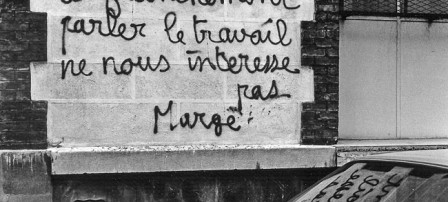 parler le travail
ne nous interesse
pas
Marge